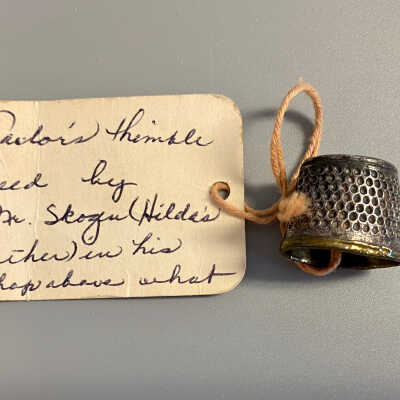 Tailor's thimble
sed by
Mr. Skogen (Hilda's
ther) in his
hop above what